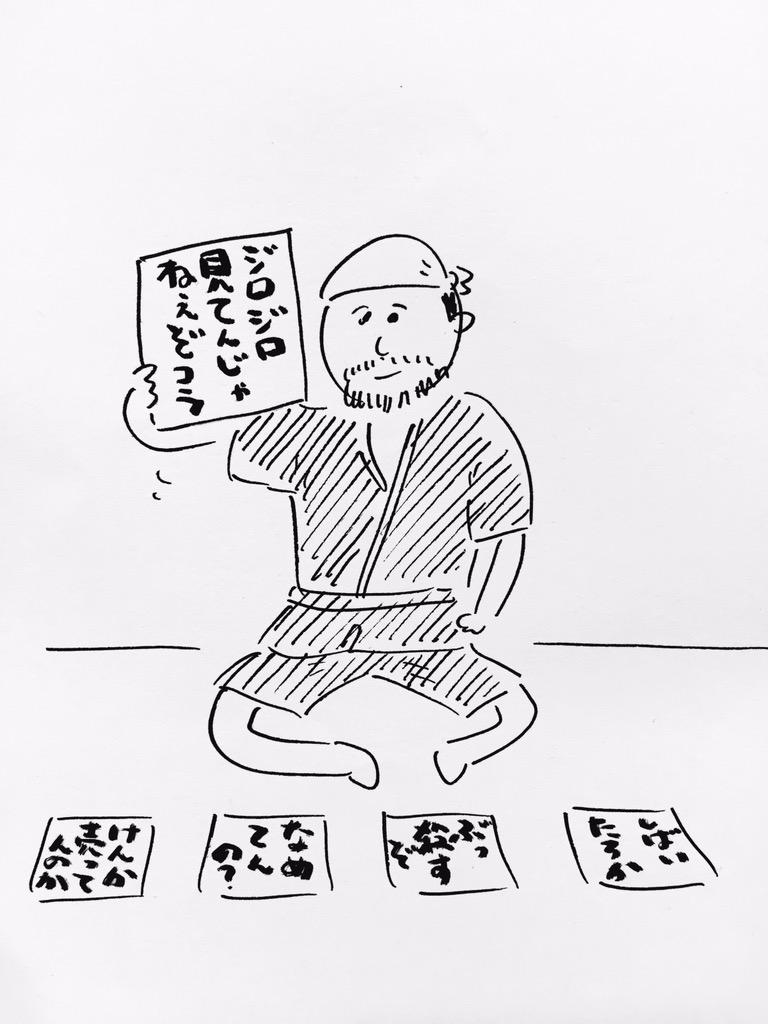 ジロジロ
見てんじゃ
ねえぞコラ
しばい
たろか
ぶっ
殺す
ぞ
なめ
てん
の?
けんか
売って
んのか